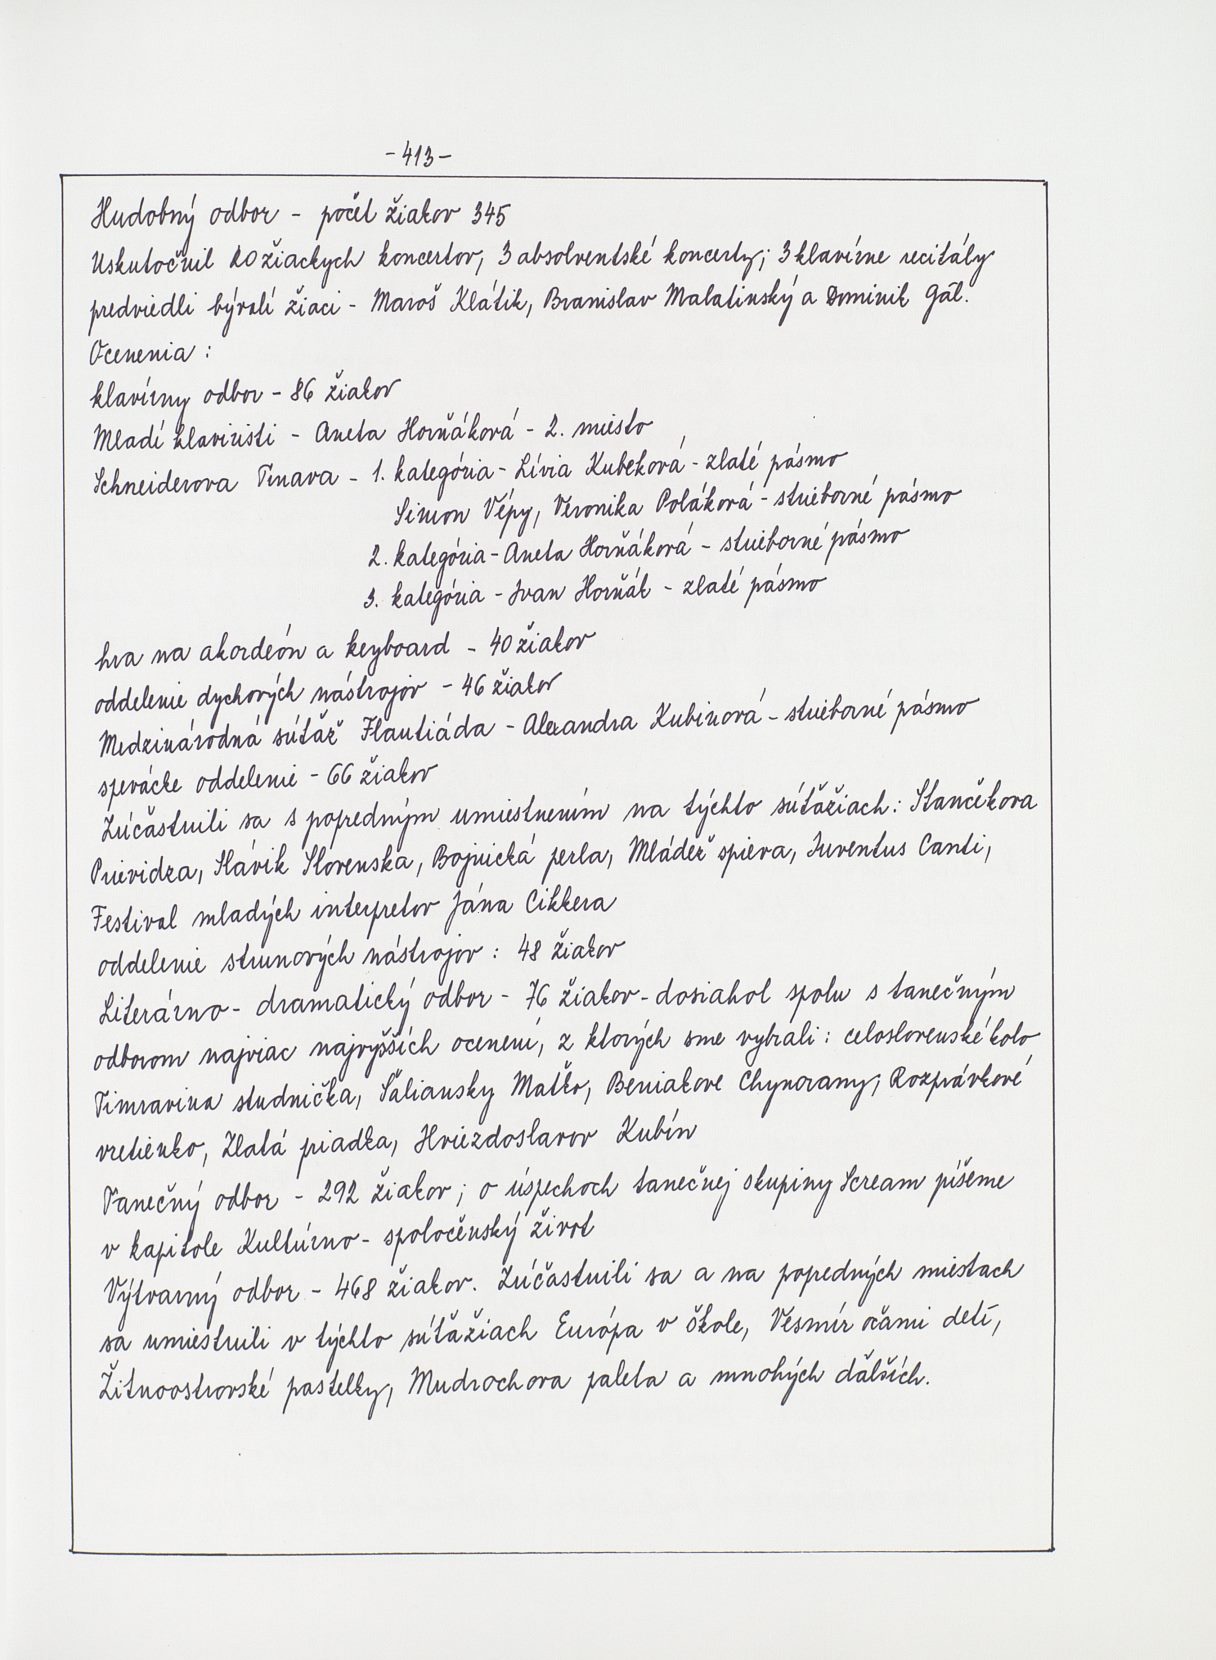 - 413 -
Hudobný odbor - počet žiakov 345
Uskutočnil 20 žiackych koncertov, 3 absolventské koncerty; 3 klavírne recitály
predviedli bývalí žiaci - Maroš Klátik, Branislav Malatinský a Dominik Gál.
Ocenenia :
klavírny odbor - 86 žiakov
Mladí klaviristi - Aneta Horňáková - 2. miesto
Schneiderova Trnava - 1. kategória - Lívia Kubeková - zlaté pásmo
Simon Vépy, Veronika Poláková - strieborné pásmo
2. kategória - Aneta Horňáková - strieborné pásmo
3. kategória - Ivan Horňák - zlaté pásmo
hra na akordeón a keyboard - 40 žiakov
oddelenie dychových nástrojov - 46 žiakov
Medzinárodná súťaž Flautiáda - Alexandra Kubinová - strieborné pásmo
spevácke oddelenie - 66 žiakov
Zúčastnili sa s popredným umiestnením na týchto súťažiach: Stančekova
Prievidza, Slávik Slovenska, Bojnická perla, Mládež spieva, Iuventus Canti,
Festival mladých interpretov Jána Cikkera
oddelenie strunových nástrojov : 48 žiakov
Literárno - dramatický odbor - 76 žiakov - dosiahol spolu s tanečným
odborom najviac najvyšších ocenení, z ktorých sme vybrali : celoslovenské kolo
Timravina studnička, Šaliansky Maťko, Beniakove Chynorany, Rozprávkové
vretienko, Zlatá priadka, Hviezdoslavov Kubín
Tanečný odbor - 292 žiakov ; o úspechoch tanečnej skupiny Scream píšeme
v kapitole Kultúrno - spoločenský život
Výtvarný odbor - 468 žiakov. Zúčastnili sa a na popredných miestach
sa umiestnili v týchto súťažiach Európa v škole, Vesmír očami detí,
Žitnoostrovské pastelky, Mudrochova paleta a mnohých ďalších.